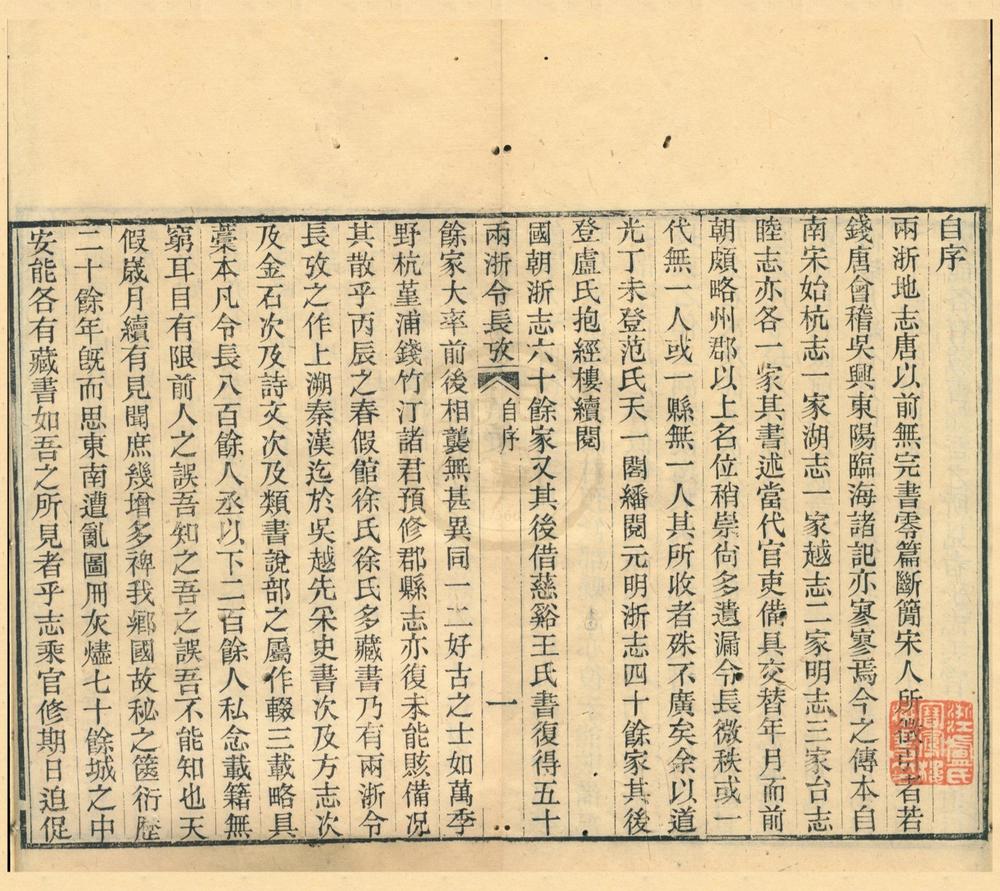 自序
兩浙地志唐以前無完書零篇斷簡宋人所徵引者若
錢唐會稽吳興東陽臨海諸記亦寥寥焉今之傳本自
南宋始杭志一家湖志一家越志二家明志三家台志
睦志亦各一家其書述當代官吏備具交替年月而前
朝頗略州郡以上名位稍崇尙多遺漏令長微秩或一
代無一人或一縣無一人其所收者殊不廣矣余以道
光丁未登范氏天一閣繙閱元明浙志四十餘家其後
登盧氏抱經樓續閱
國朝浙志六十餘家又其後借慈谿王氏書復得五十
兩浙令長攷
自序
一
餘家大率前後相襲無甚異同一二好古之士如萬季
野杭堇浦錢竹汀諸君預修郡縣志亦復未能賅備况
其散乎丙辰之春假館徐氏徐氏多藏書乃有兩浙令
長攷之作上溯秦漢迄於吳越先采史書次及方志次
及金石次及詩文次及類書說部之屬作輟三載略具
藁本凡令長八百餘人丞以下二百餘人私念載籍無
窮耳目有限前人之誤吾知之吾之誤吾不能知也天
假歲月續有見聞庶幾增多裨我鄉國故秘之篋衍歷
二十餘年旣而思東南遭亂圖冊灰燼七十餘城之中
安能各有藏書如吾之所見者乎志乘官修期日迫促